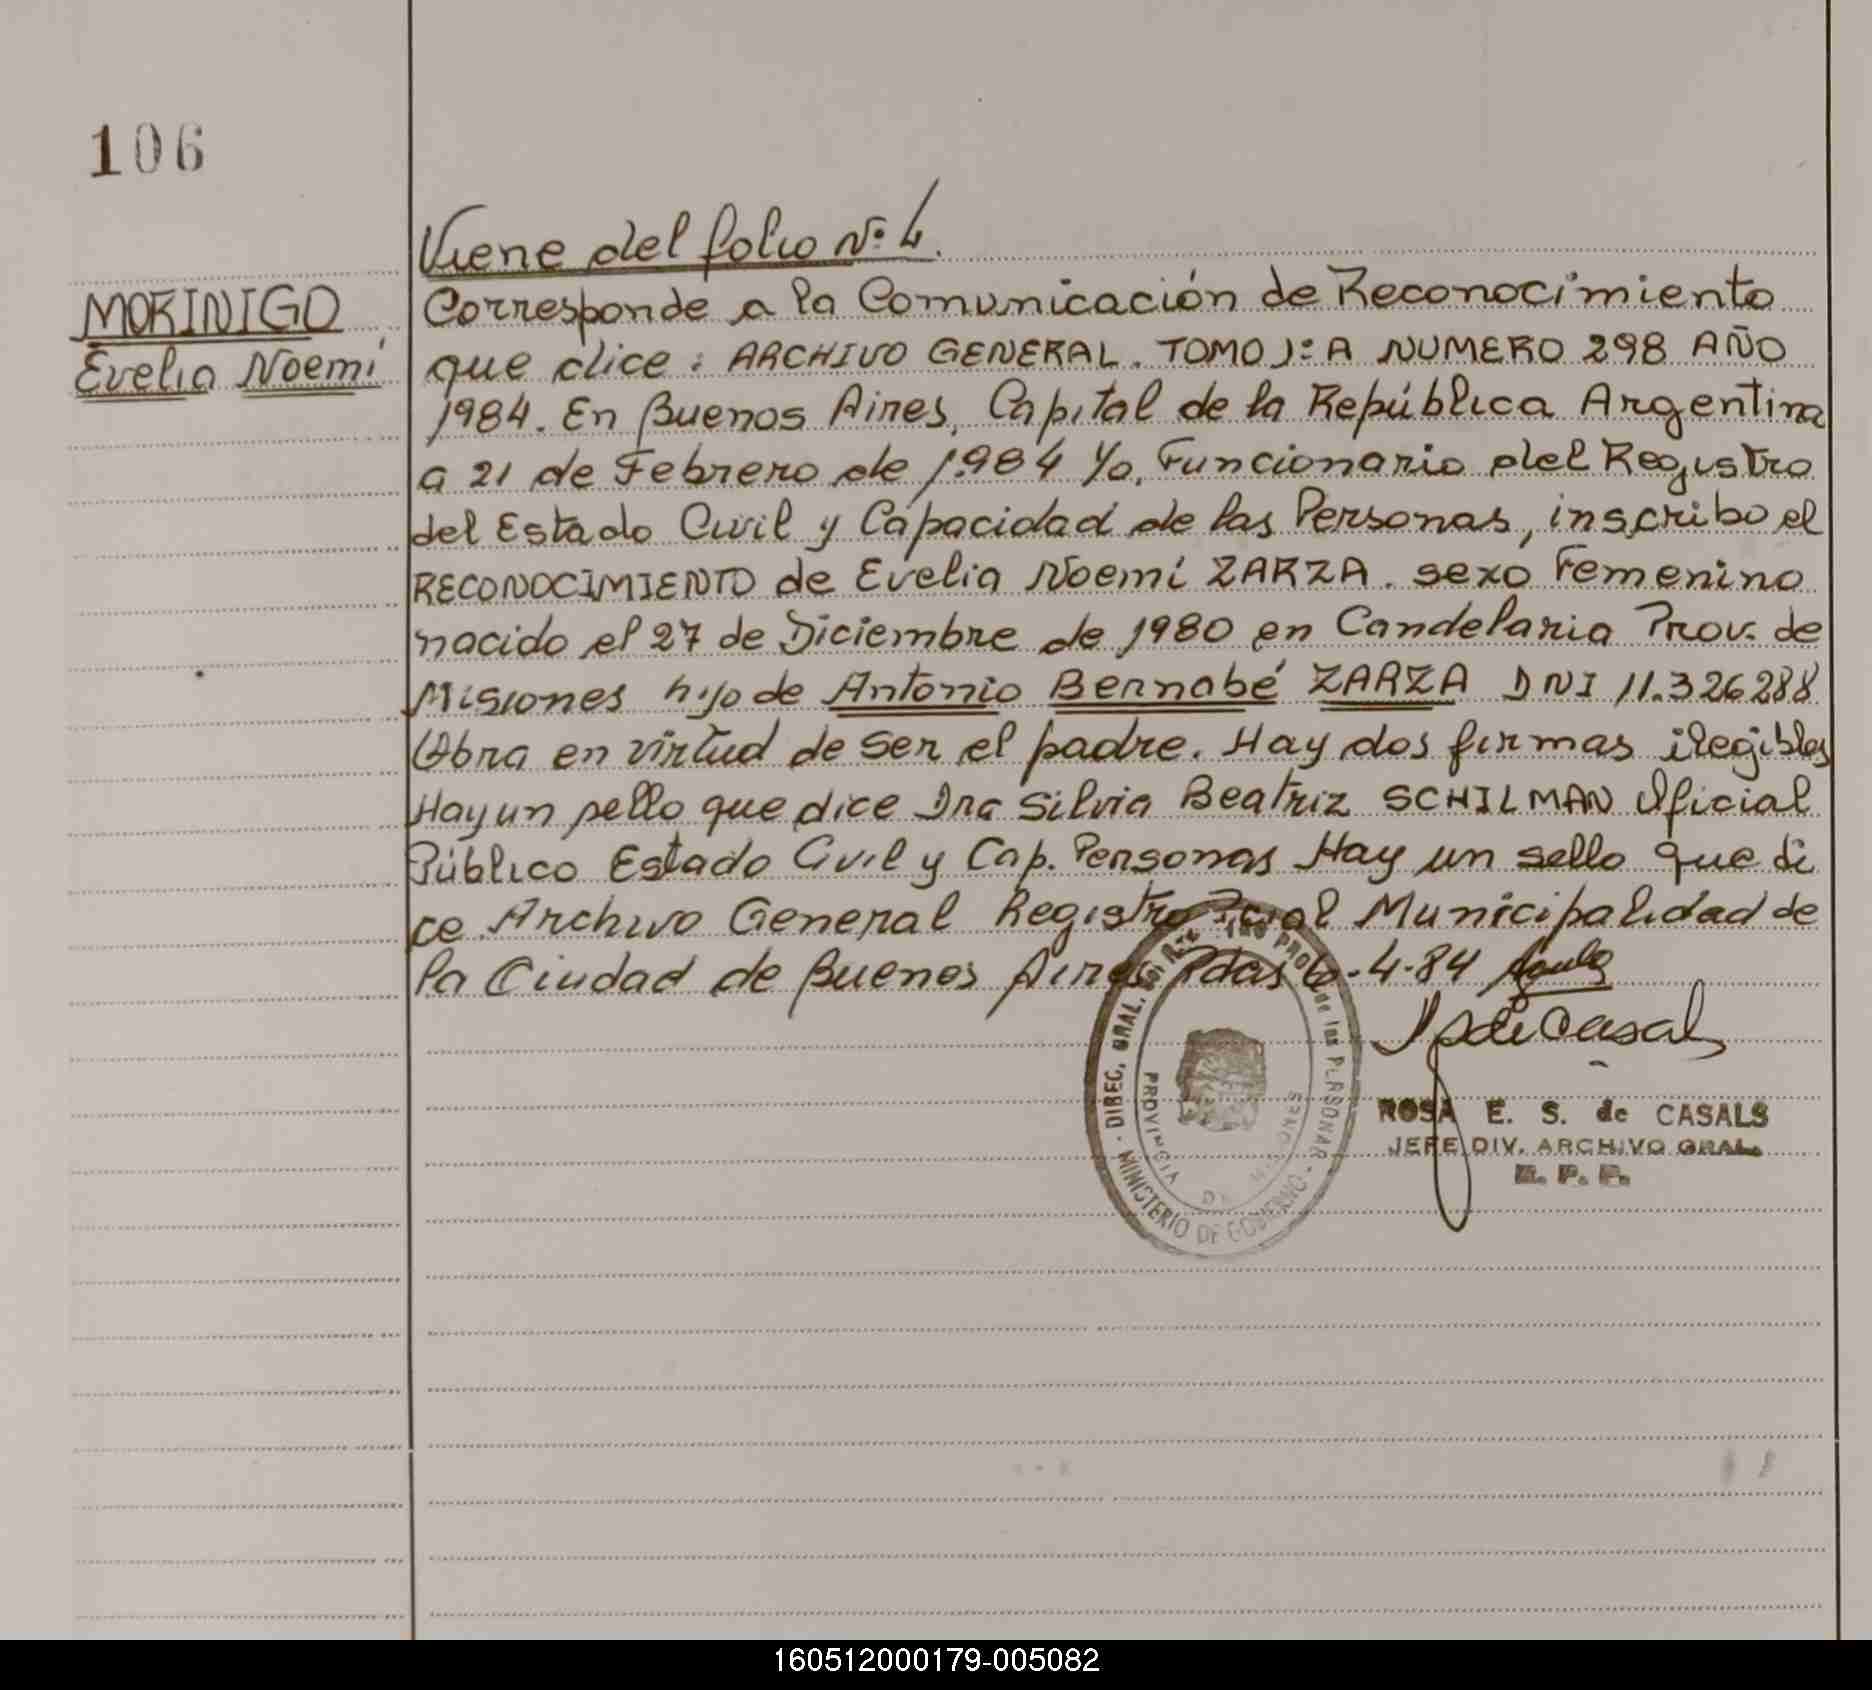 106
Viene del folio Nº 4.
MORINIGO
Evelia Noemí
Corresponde a la Comunicación de Reconocimiento
que dice: ARCHIVO GENERAL. TOMO 1º A NUMERO 298 AÑO
1984. En Buenos Aires, Capital de la República Argentina
a 21 de Febrero de 1.984 Yo, Funcionario del Registro
del Estado Civil y Capacidad de las Personas, inscribo el
RECONOCIMIENTO de Evelia Noemí ZARZA. sexo Femenino
nacido el 27 de Diciembre de 1980 en Candelaria Prov. de
Misiones hijo de Antonio Bernabé ZARZA DNI 11.326288
Obra en virtud de ser el padre. Hay dos firmas ilegibles
Hay un sello que dice Dra Silvia Beatriz SCHILMAN Oficial
Público Estado Civil y Cap. Personas Hay un sello que di
ce Archivo General Registro Municipalidad de
la Ciudad de Buenos Aires Pdas 6-4-84
DIREC. GRAL. de las PERSONAS
PROVINCIA DE MISIONES
MINISTERIO DE GOBIERNO
ROSA E. S. de CASALS
JEFE DIV. ARCHIVO GRAL.
R. P. P.
160512000179-005082